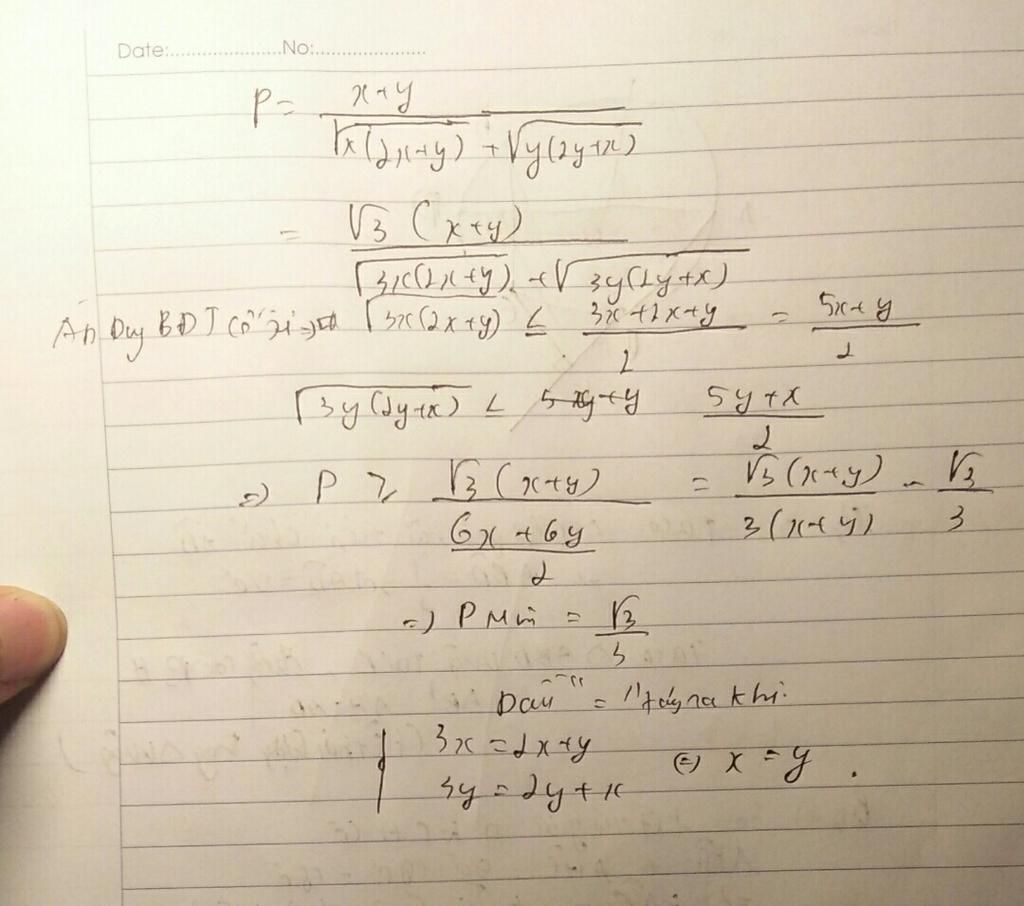 Date:....................No:....................
P = x+y / √x(2x+y) + √y(2y+x)
= √3 (x+y) / √3x(2x+y) + √3y(2y+x)
BĐT √3x(2x+y) ≤ 3x+2x+y / 2 = 5x+y / 2
√3y(2y+x) ≤ 5y+x / 2
=) P ≥ √3 (x+y) / 6x+6y / 2 = √3 (x+y) / 3(x+y) = √3 / 3
=) P Min = √3 / 3
Dấu " = " xảy ra khi.
3x = 2x+y
3y = 2y+x (=) x = y .